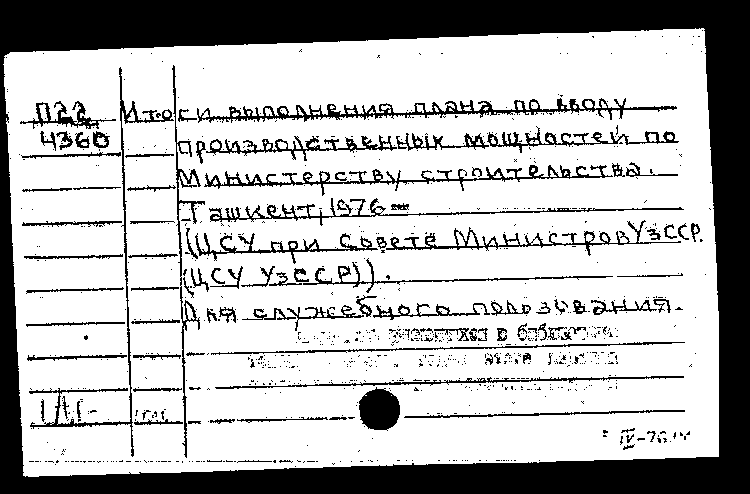 П22 Итоги выполнения плана по вводу
4360 производственных мощностей по
Министерству строительства.
Ташкент, 1976 —
(ЦСУ при Совете Министров УзССР.
(ЦСУ УзССР)).
Для служебного пользования.
в библиотеке
IV-76